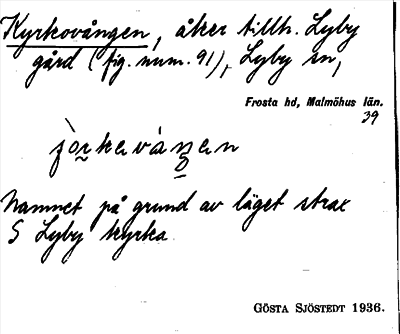 Kyrkovången, åker tillh. Lyby
gård (fig. num. 91), Lyby sn,
Frosta hd, Malmöhus län.
39
Namnet på grund av läget strax
S Lyby kyrka
GÖSTA SJÖSTEDT 1936.